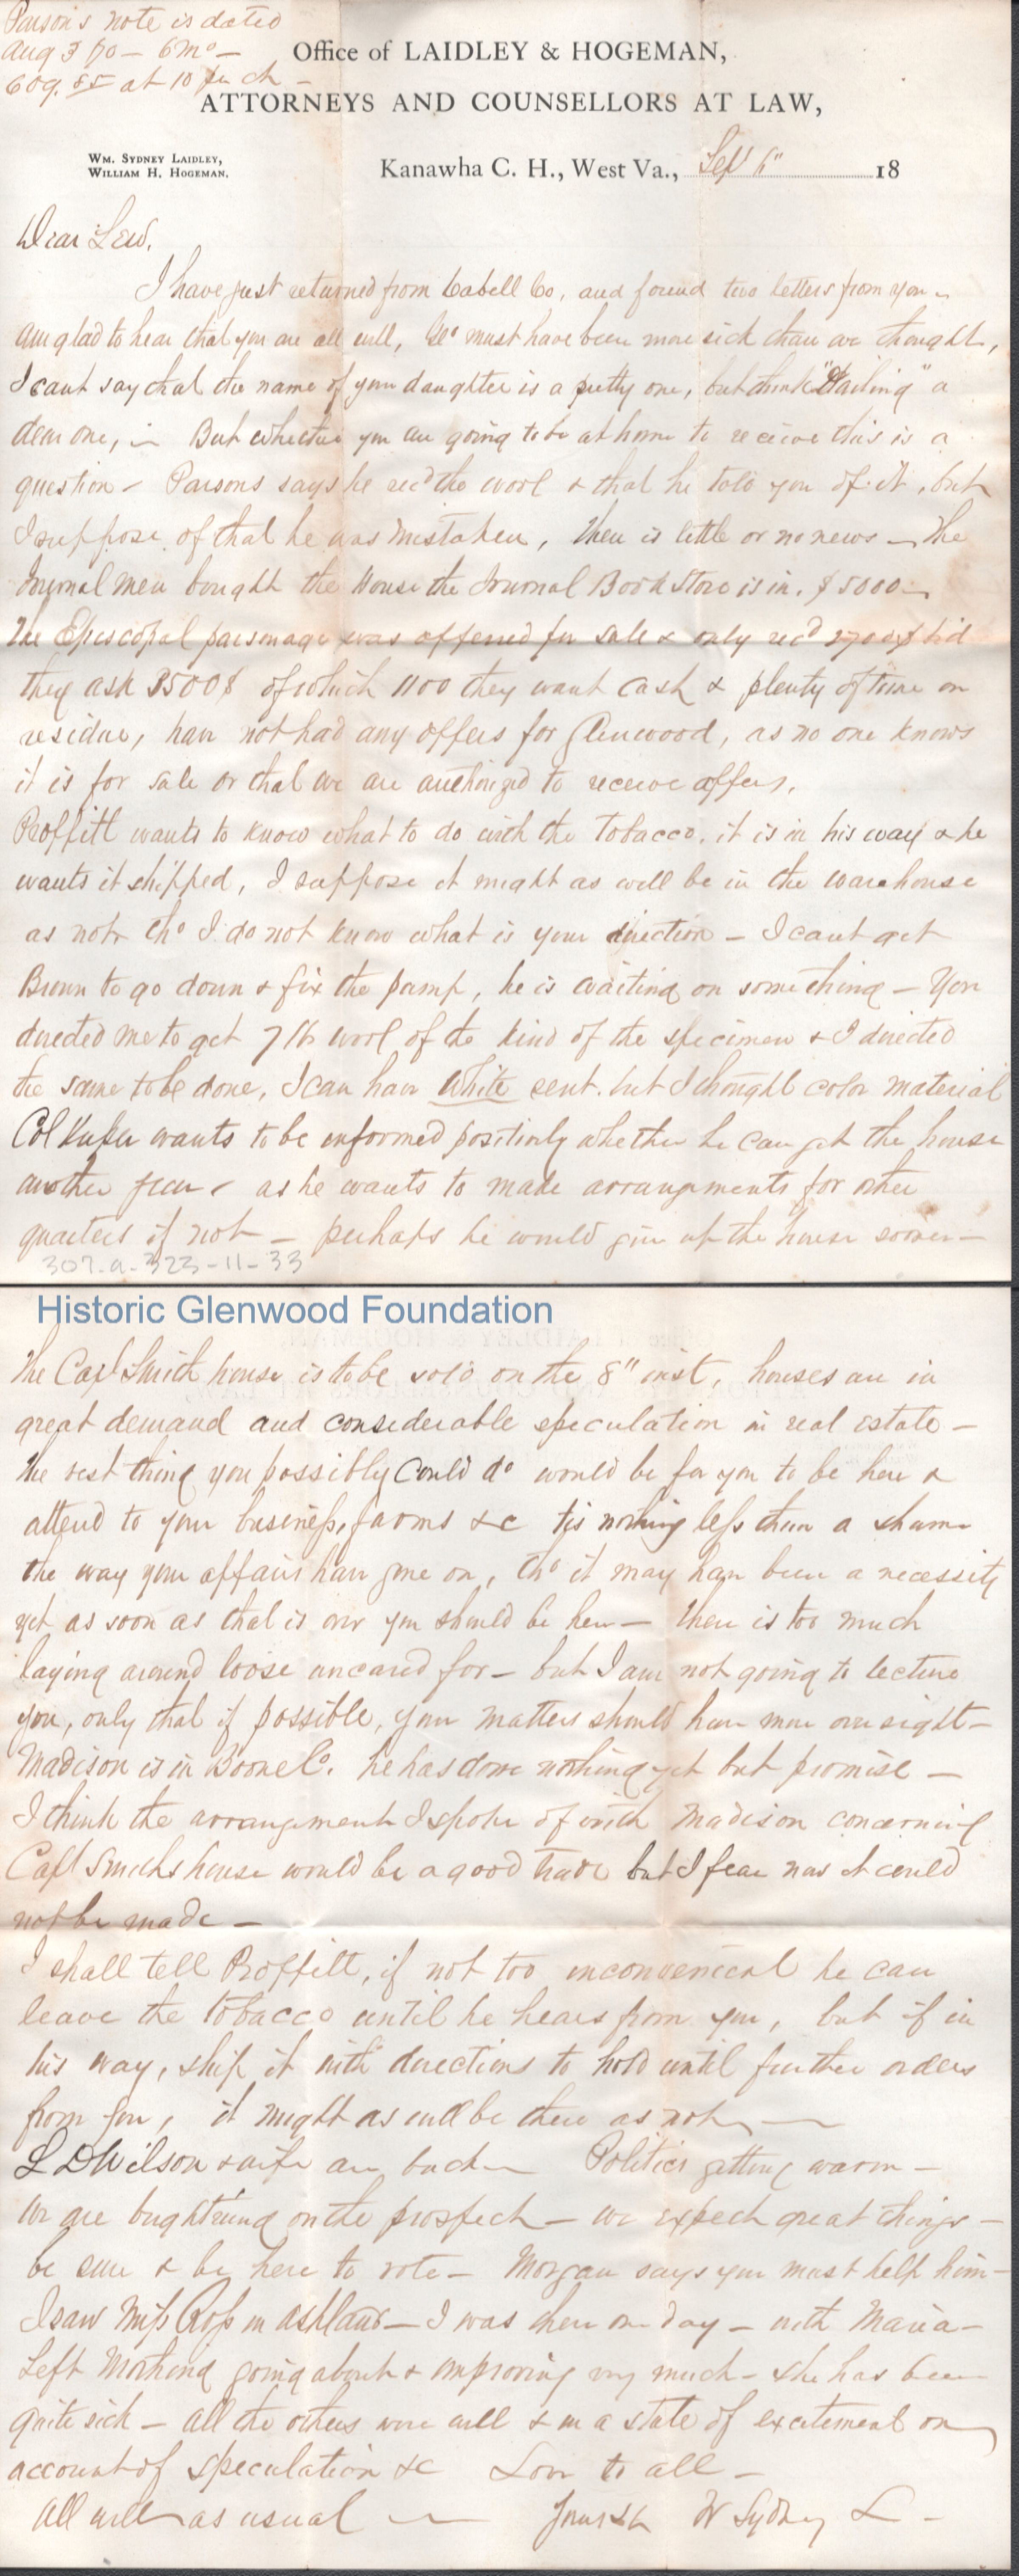 Parson's note is dated
Aug 3 70 — 6 mo —
609.85 at 10 per ct —
Office of LAIDLEY & HOGEMAN,
ATTORNEYS AND COUNSELLORS AT LAW,
WM. SYDNEY LAIDLEY,
WILLIAM H. HOGEMAN.
Kanawha C. H., West Va., Sept 6" 18
Dear Lew,
I have just returned from Cabell Co, and found two letters from you —
Am glad to hear that you are all well, must have been more sick than we thought,
I cant say that the name of your daughter is a pretty one, but think "Darling" a
dear one, — But whether you are going to be at home to receive this is a
question — Parsons says he recd the wool & that he told you of it, but
I suppose of that he was mistaken, there is little or no news — The
Journal men bought the House the Journal Book Store is in. $5000 —
The Episcopal parsonage was offered for sale & only recd 2700$ bid
they ask 3500$ of which 1100 they want cash & plenty of time on
residue, have not had any offers for Glenwood, as no one knows
it is for sale or that we are authorized to receive offers.
Proffitt wants to know what to do with the Tobacco, it is in his way & he
wants it shipped, I suppose it might as well be in the warehouse
as not tho I do not know what is your direction — I cant get
to go down & fix the pump, he is waiting on something — You
directed me to get 7 lb wool of the kind of the specimen & I directed
the same to be done, I can have White sent. but I thought color material
Col wants to be informed positively whether he can get the house
another year as he wants to make arrangements for other
quarters if not — perhaps he would give up the house sooner —
307-a-323-11-33
Historic Glenwood Foundation
The Capt Smith house is to be sold on the 8" inst, houses are in
great demand and considerable speculation in real estate —
The best thing you possibly could do would be for you to be here &
attend to your business, farms &c tis nothing less than a shame
the way your affairs have gone on, tho it may have been a necessity
yet as soon as that is over you should be here — there is too much
laying around loose uncared for — but I am not going to lecture
you, only that if possible, your matters should have more oversight —
Madison is in Boone Co. he has done nothing yet but promise —
I think the arrangement I spoke of with Madison concerning
Capt Smiths house would be a good trade but I fear now it could
not be made —
I shall tell Proffitt, if not too inconvenient he can
leave the tobacco until he hears from you, but if in
his way, ship it with directions to hold until further orders
from you, it might as well be there as not —
L D Wilson & wife are back — Politics getting warm —
we are brightning on the prospect — we expect great things —
be sure & be here to vote — Morgan says you must help him —
I saw Miss Ross in Ashland — I was there one day — with Maria —
Left going about & improving very much — she has been
quite sick — all the others were well & in a state of excitement on
account of speculation &c Love to all —
All well as usual — Yours &c W Sydney L —